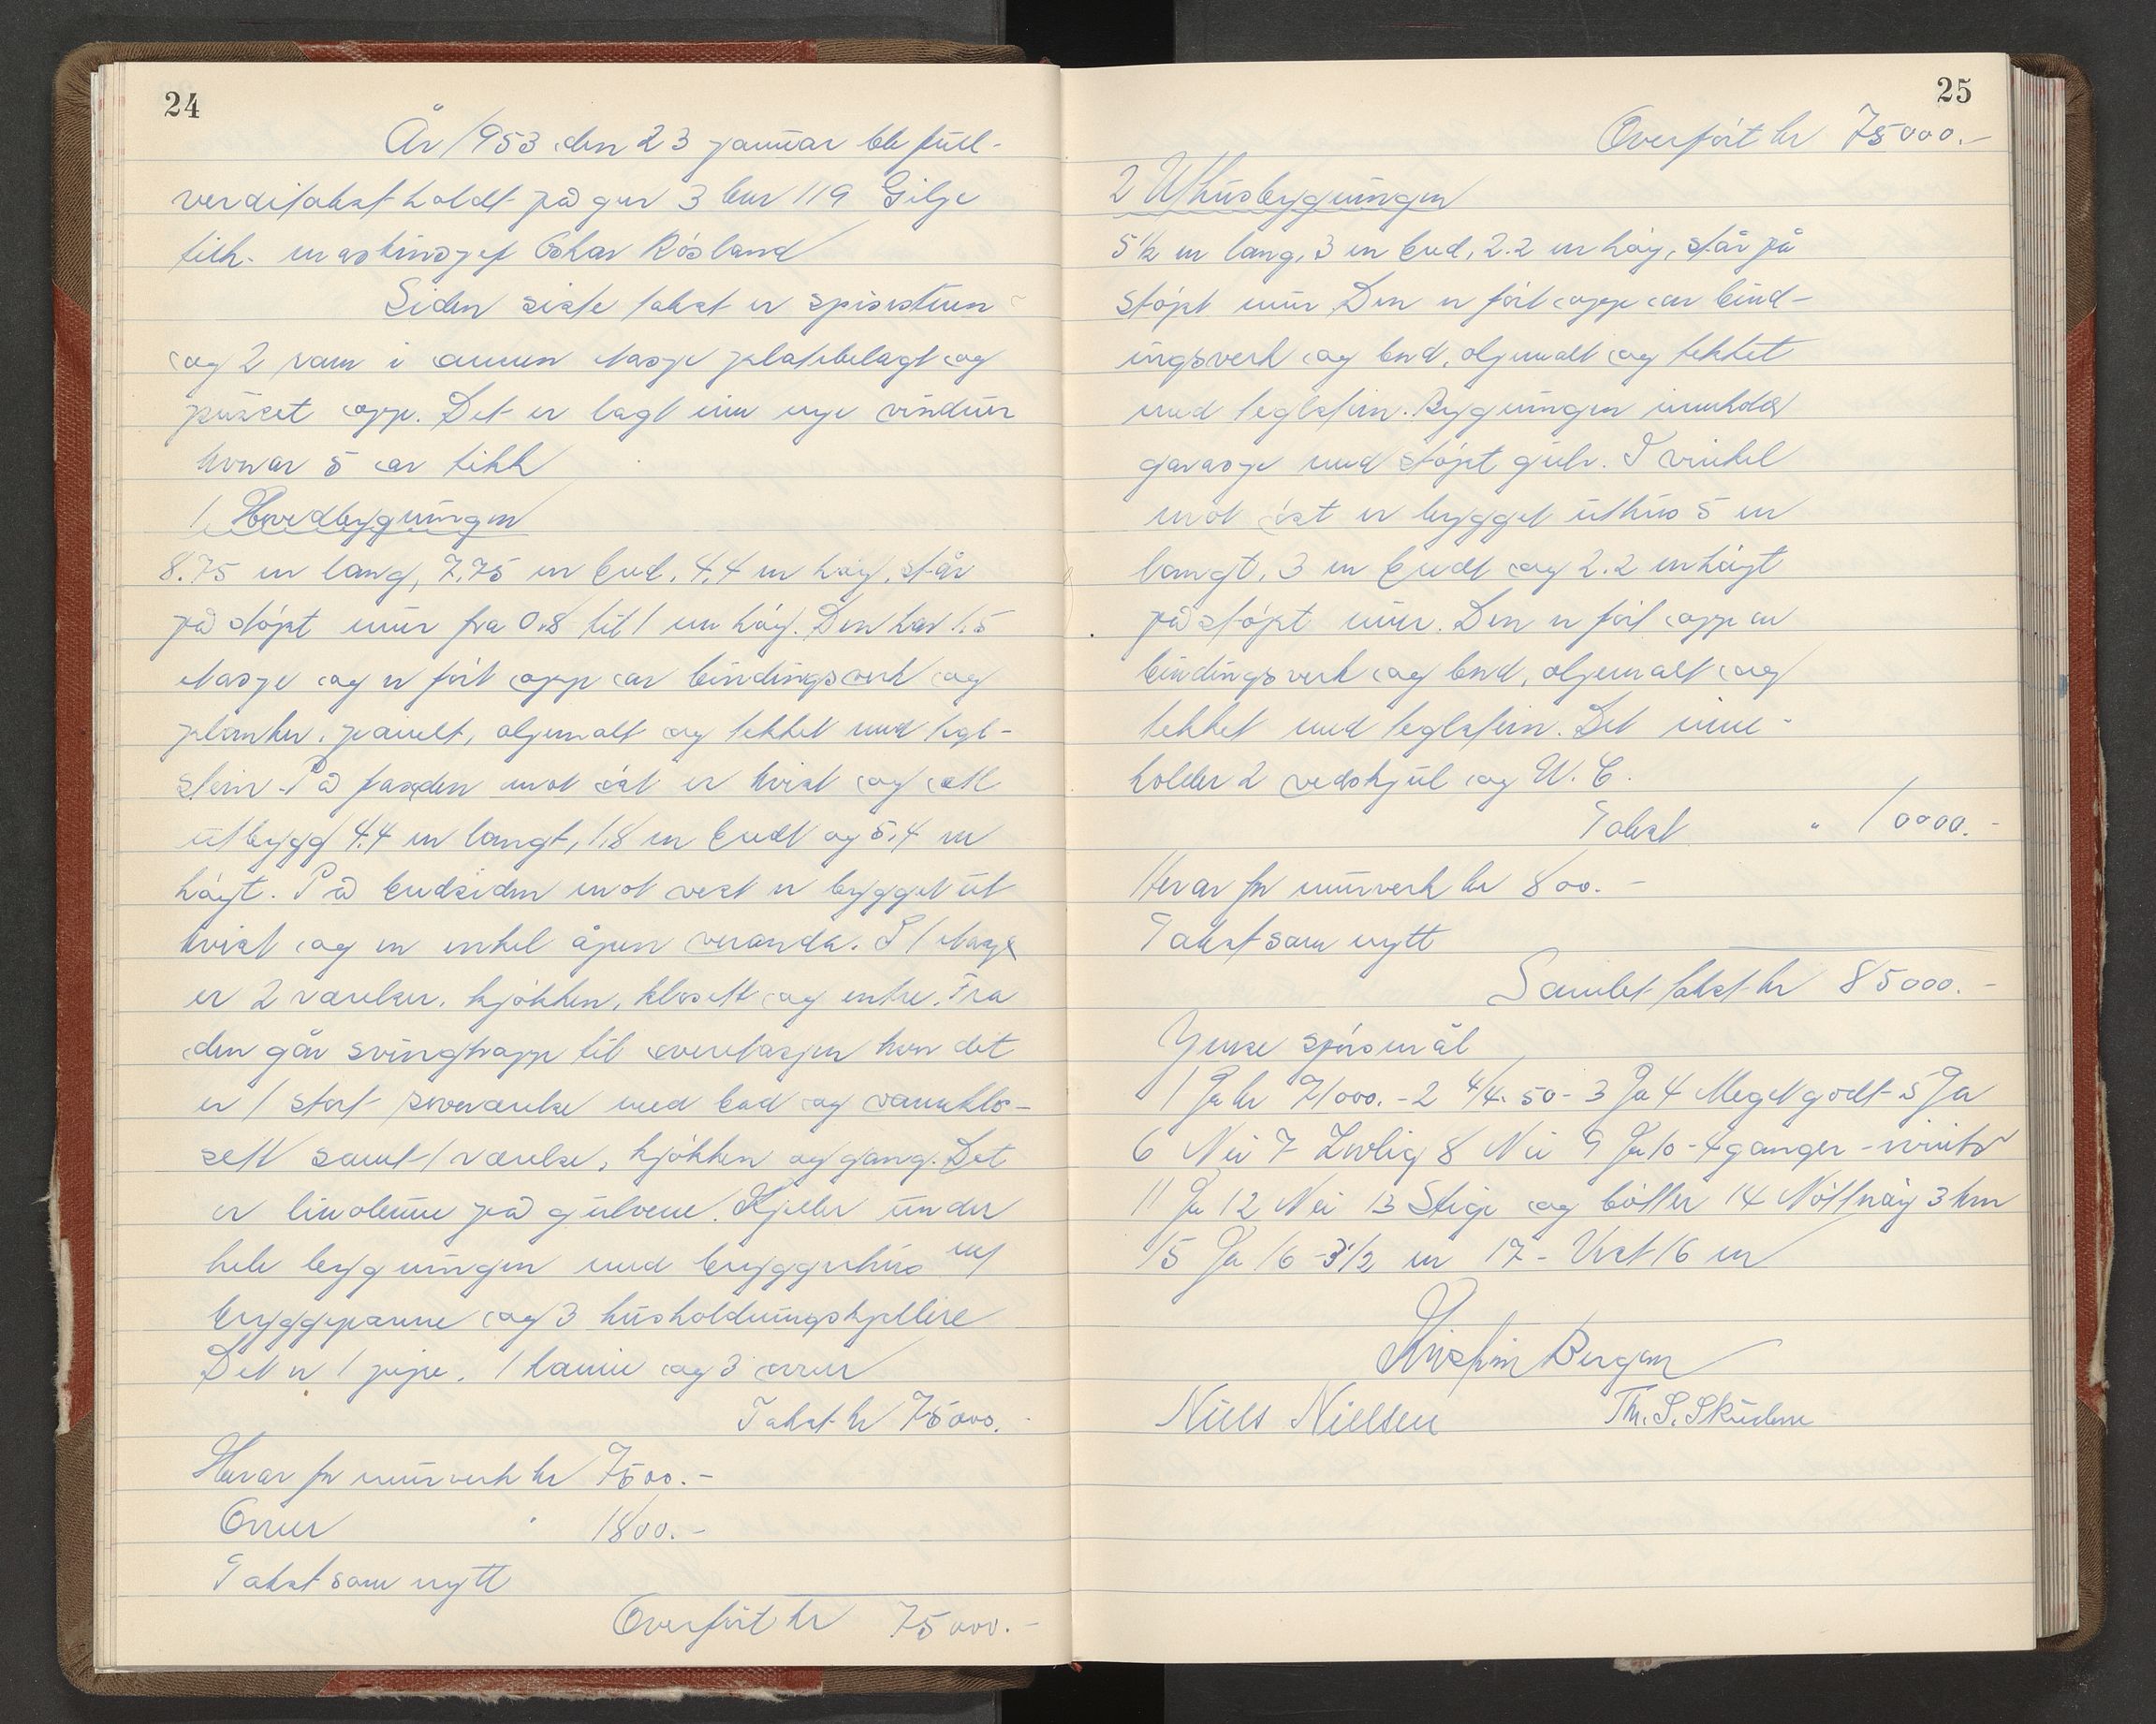 24
År 1953 den 23 januar ble full-
verditakst holdt på gnr 3 bnr 119 Gilje
tilh. maskinsjef Oskar Røsland
Siden siste takst er spisestuen
og 2 rom i annen etasje platebelagt og
pusset opp. Det er lagt inn nye vinduer
hvorav 5 av tikk
1 Hovedbygningen
8.75 m lang, 7.75 m bred, 4,4 m høy, står
på støpt mur fra 0,8 til 1 m høy. Den har 1.5
etasje og er ført opp av bindingsverk og
planker, panelt, oljemalt og tekket med tegl-
stein. På fasaden mot øst er kvist og ett
utbygg 4.4 m langt, 1,8 m bredt og 5,4 m
høyt. På bredsiden mot vest er bygget ut
kvist og en enkel åpen veranda. I 1 etasje
er 2 værelser, kjøkken, klosett og entre. Fra
den går svingtrapp til overetasjen hvor det
er 1 stort soveværelse med bad og vannklo-
sett samt 1 værelse, kjøkken og gang. Det
er linoleum på gulvene. Kjeller under
hele bygningen med bryggerhus m/
bryggepanne og 3 husholdningskjellere
Det er 1 pipe, 1 kamin og 3 ovner
Takst kr 75000.-
Herav for murverk kr 7500.-
Ovner " 1800.-
Takst som nytt
Overført kr 75000.-
25
Overført kr 75000.-
2 Uthusbygningen
5 1/2 m lang, 3 m bred, 2.2 m høy, står på
støpt mur. Den er ført opp av bind-
ingsverk og bord, oljemalt og tekket
med teglstein. Bygningen innholder
garasje med støpt gulv. I vinkel
mot øst er bygget uthus 5 m
langt, 3 m bredt og 2.2 m høyt
på støpt mur. Den er ført opp av
bindingsverk og bord, oljemalt og
tekket med teglstein. Det inne-
holder 2 vedskjul og W.C.
Takst " 10000.-
Herav for murverk kr 800.-
Takst som nytt
Samlet takst kr 85000.-
Ymse spørsmål
1 Ja kr 71000.- 2 4/4-50 - 3 Ja 4 Meget godt - 5 Ja
6 Nei 7 Lovlig 8 Nei 9 Ja 10 - 4 ganger - vinter
11 Ja 12 Nei 13 Stige og bøtter 14 3 km
15 Ja 16 - 3 1/2 m 17 - Vest 16 m
Kristian Bergen
Niels Nielsen Th. S. Skudem